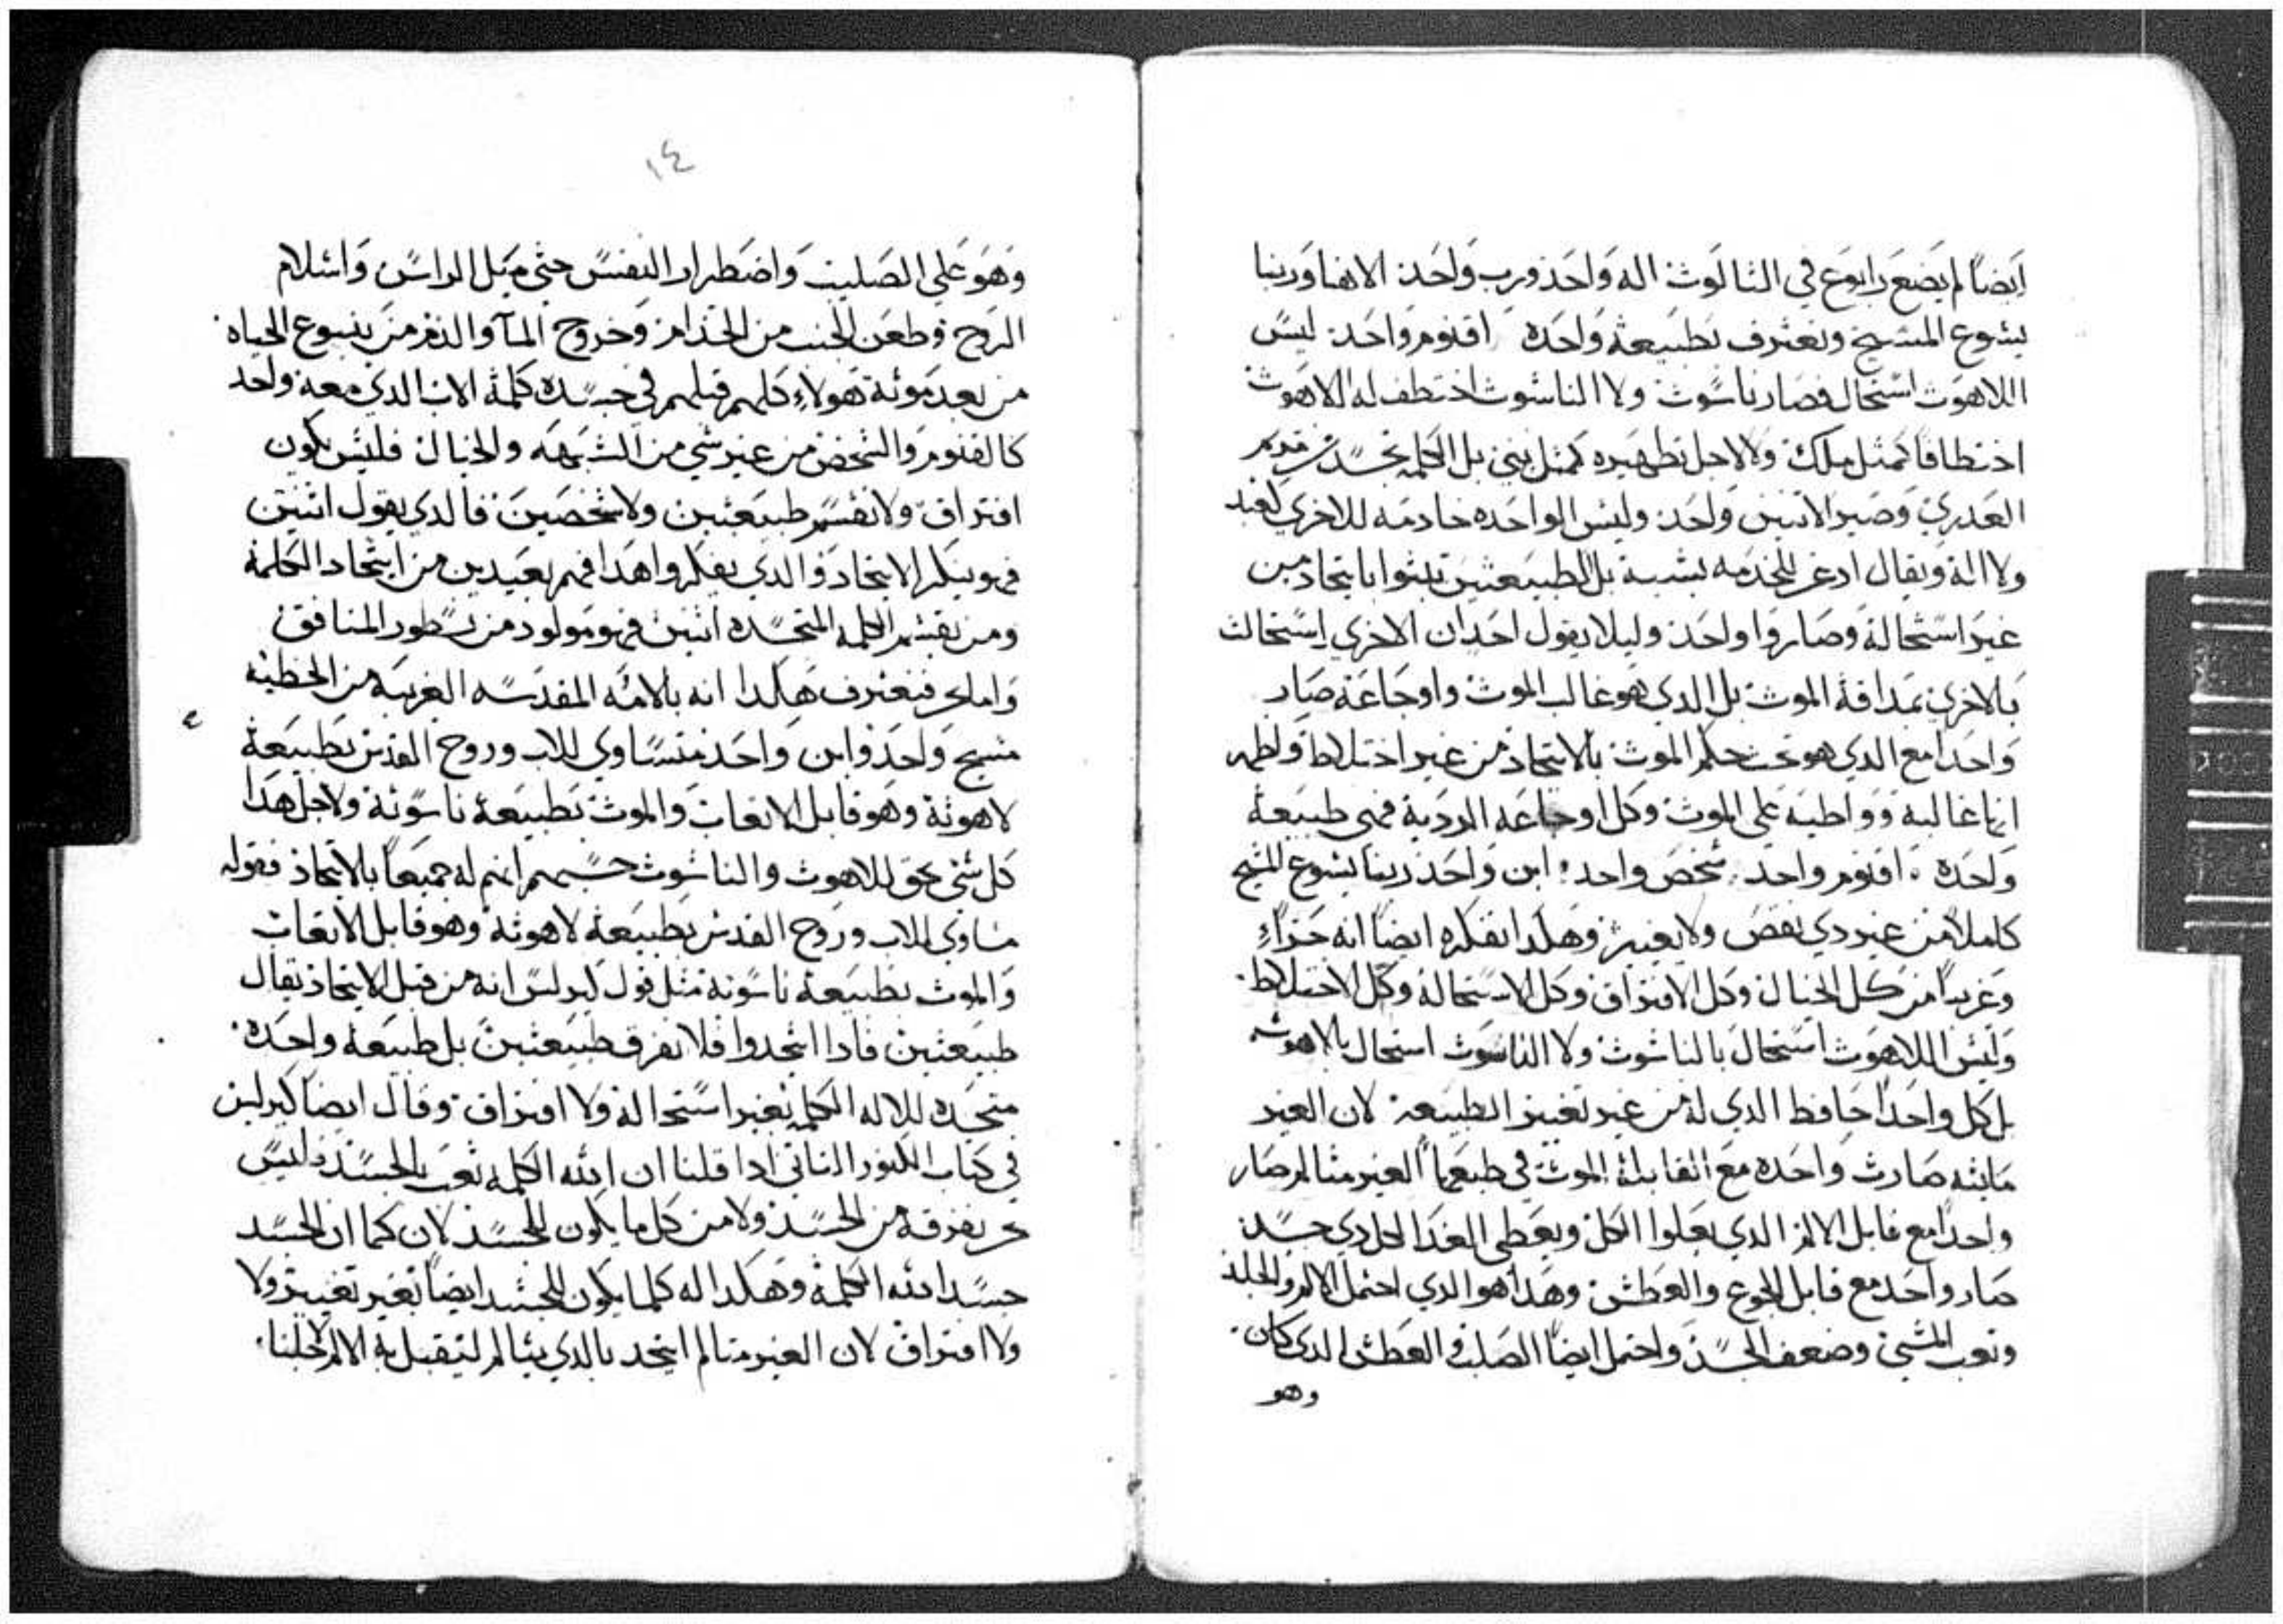 ايضا لم يضع رابوع في الثالوث اله واحد ورب واحد الاهنا وربنا
يشوع المسيح ونعترف بطبيعة واحده اقنوم واحد ليس
اللاهوت استحال فصار ناسوت ولا الناسوت اختطف له اللاهوت
اختطافا كمثل ملك ولا لاجل تطهيره كمثل نبي بل الكلمه تجسد من مريم
العدري وصير الاتنين واحد وليس الواحده خادمه للاخري لعبد
ولا اله ويقال ادغر للخدمه بشبه بل الطبيعتين تبثوا باتحاد من
غير استحالة وصاروا واحد وليلا يقول احد ان الاخري استحالت
بالاخري بمداقة الموت بل الدي هو غالب الموت واوجاعة صار
واحدا مع الدي هو تحت حكم الموت بالاتحاد من غير اختلاط ولطهر
انها غالبة وواطيه علي الموت وكل اوجاعه الرديه فهي طبيعة
واحده . اقنوم واحد . شخص واحد . ابن واحد ربنا يشوع المسيح
كاملا من غير دي نقص ولا تغيير وهكدا نفكره ايضا انه حراء
وغريبا من كل الخيال وكل الافتراق وكل الاستحالة وكل الاختلاط .
وليس اللاهوت استحال بالناسوت ولا الناسوت استحال بالاهوت
بل كل واحدا حافظ الدي له من غير تغيير الطبيعة لان الغير
مايته صارت واحده مع القابلة الموت في طبعها الغير متالم صار
واحدا مع قابل الالم الدي يعلوا الكل ويعطي الغدا لكل دي جسد
صار واحد مع قابل الجوع والعطش وهدا هو الدي احتمل الالم والجلد
وتعب المشي وضعف الجسد واحتمل ايضا الصلب والعطش الدي كان .
وهو
١٤
وهو علي الصليب واضطرار النفس حتي ميل الراس واسلام
الروح وطعن الجنب من الخدام وخروج المآ والدم من ينبوع الحياه .
من بعد موته هولاء كلهم قبلهم في جسده كلمة الاب الدي معه واحد
كالقنوم والشخص من غير شي من الشبهه والخيال فليس يكون
افتراق ولا نقسم طبيعتين ولا شخصين فالدي يقول اتنين
فهو ينكر الاتحاد والدي يفكروا هدا فهم بعيدين من اتحاد الكلمة
ومن يقسم الكلمه المتجسده اتنين فهو مولود من نسطور المنافق
واما نحن فنعترف هكدا انه بالامه المقدسه الغريبه من الخطية
مسيح واحد وابن واحد متساوي للاب وروح القدس بطبيعة
لاهوتة وهو قابل الاتعاب والموت بطبيعة ناسوتة ولاجل هدا
كل شي يحق للاهوت والناسوت حسبهم انهم له جميعا بالاتحاد فقوله
مساوي للاب وروح القدس بطبيعة لاهوتة وهو قابل الاتعاب
والموت بطبيعة ناسوتة مثل قول كيرلس انه من قبل الاتحاد يقال
طبيعتين فادا اتحدوا فلا نفرق طبيعتين بل طبيعة واحده .
متجسده للاله الكلمه بغير استحالة ولا افتراق . وقال ايضا كيرلس
في كتاب الكنوز التاني ادا قلنا ان الله الكلمه تعب بالجسد وليس
نحن نفرقه من الجسد ولا من كل ما يكون للجسد لان كما ان الجسد
جسد الله الكلمة وهكدا له كلما يكون للجسد ايضا بغير تغيير ولا
ولا افتراق لان الغير متالم اتحد بالدي يتالم ليتقبل به الالم لاجلنا .